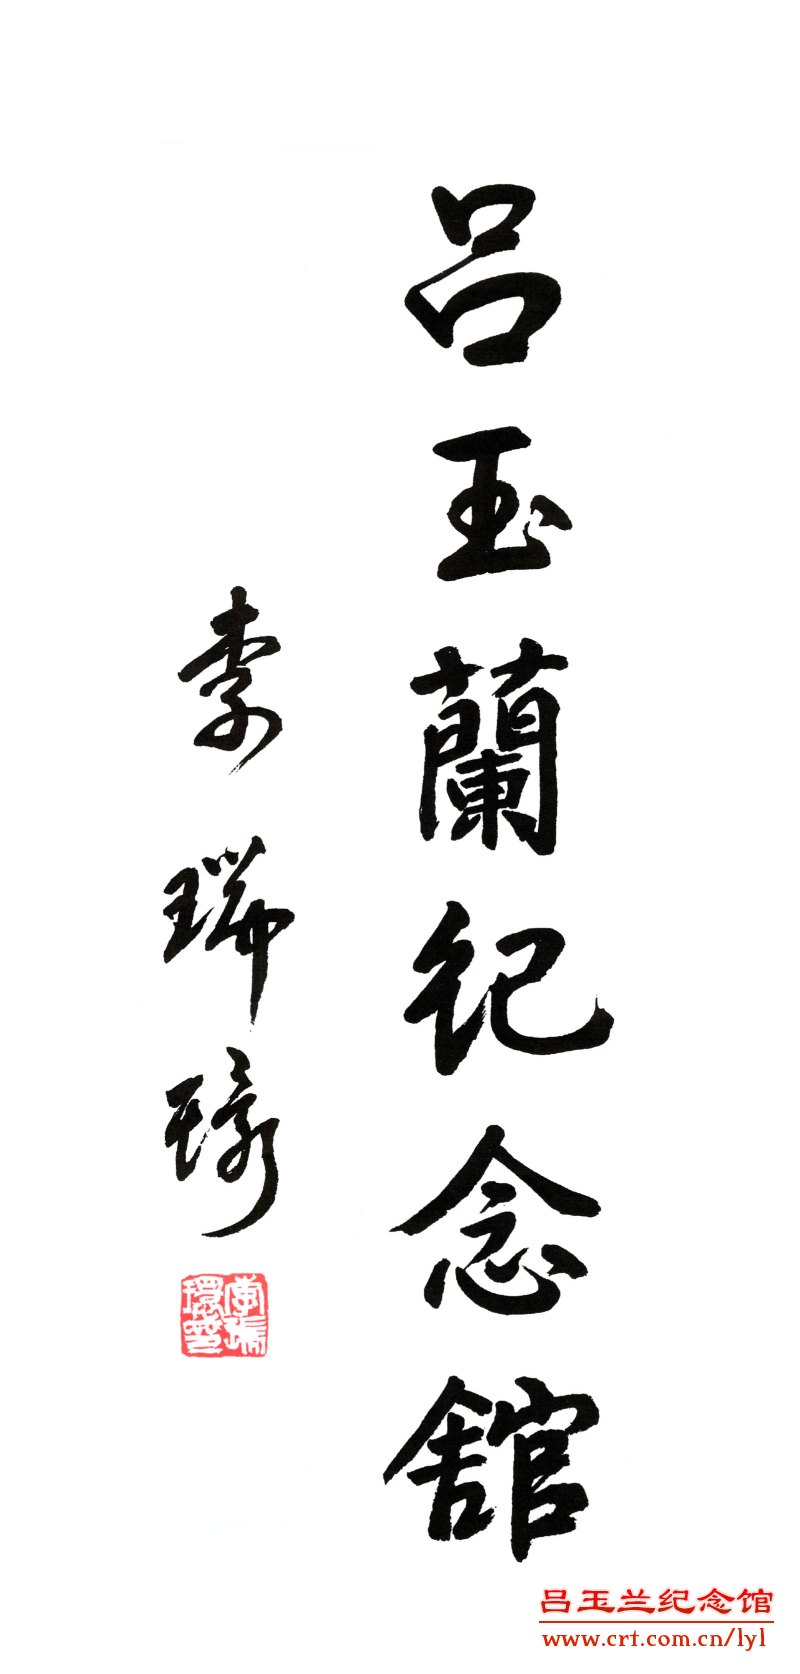 吕玉蘭纪念舘
李瑞環
李瑞環印
吕玉兰纪念馆
www.crt.com.cn/lyl